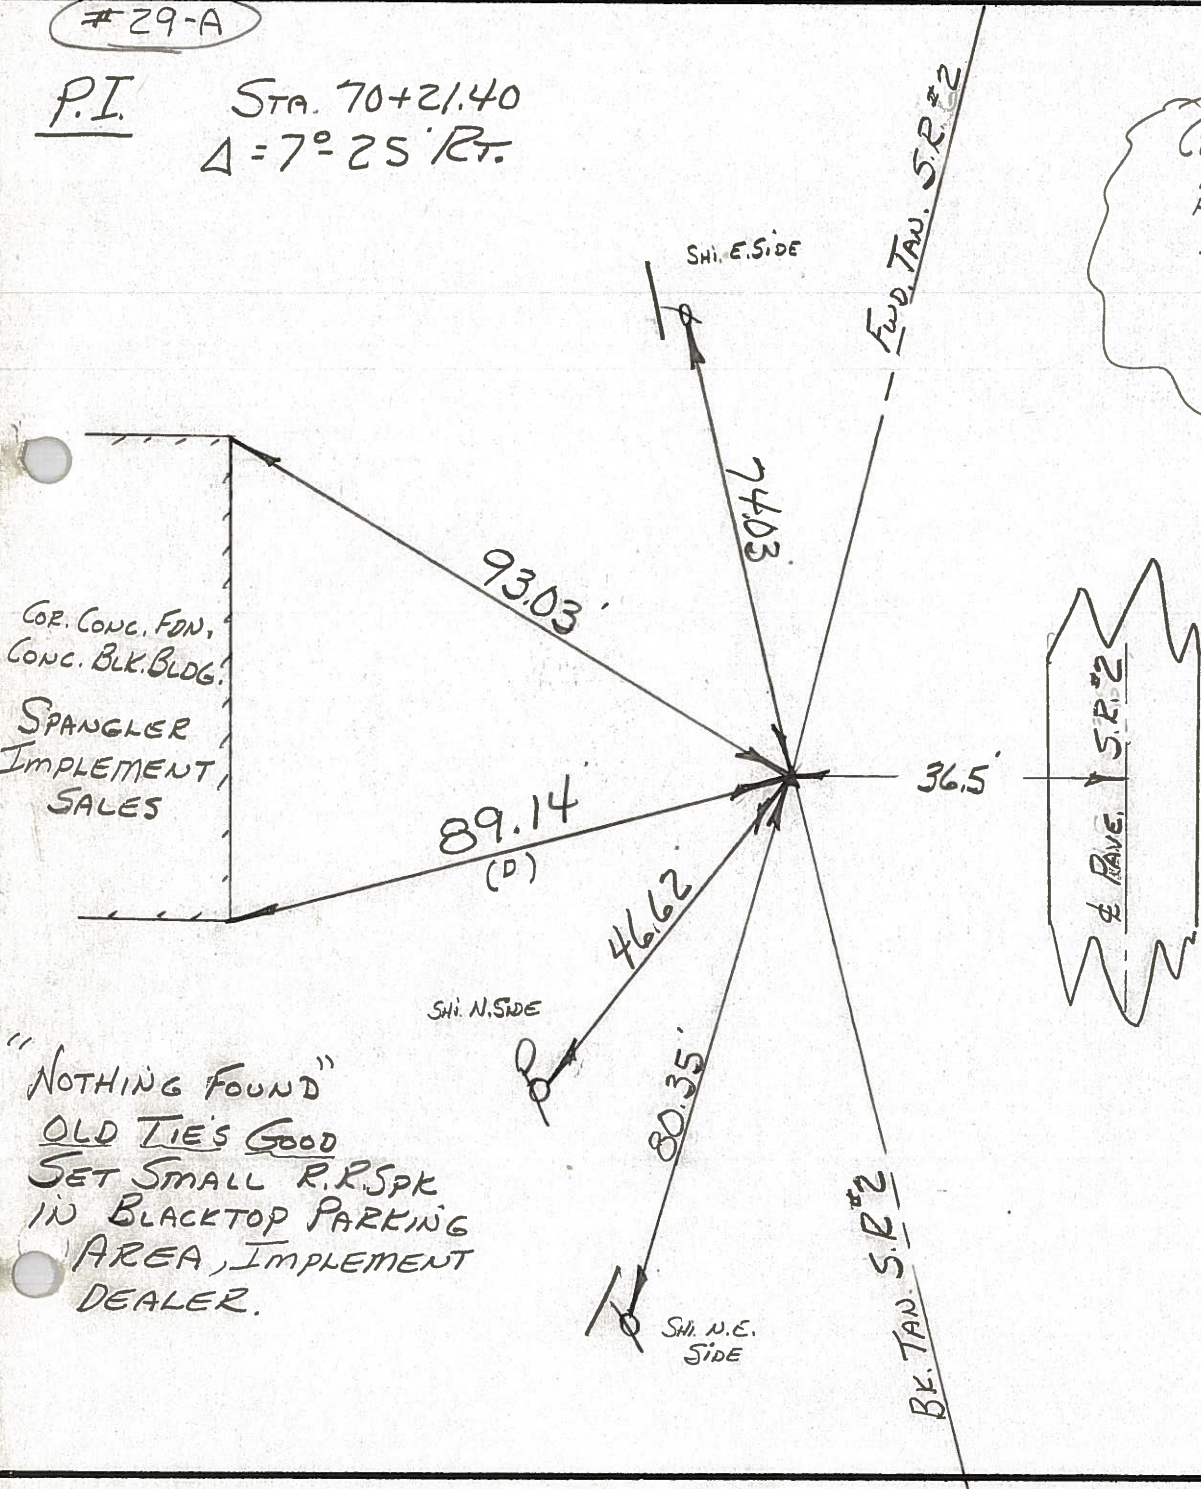 #29-A
P.I. STA. 70+21.40
Δ=7°-25' RT.
FWD. TAN. S.R.#2
SHI. E.SIDE
74.03
93.03'
COR. CONC. FDN,
CONC. BLK. BLDG.
SPANGLER
IMPLEMENT,
SALES
36.5'
℄ PAVE. S.R.#2
89.14'
(D)
46.62
SHI. N.SIDE
80.35'
"NOTHING FOUND"
OLD TIE'S GOOD
SET SMALL R.R.SPK
IN BLACKTOP PARKING
AREA, IMPLEMENT
DEALER.
SHI. N.E.
SIDE
BK. TAN. S.R#2